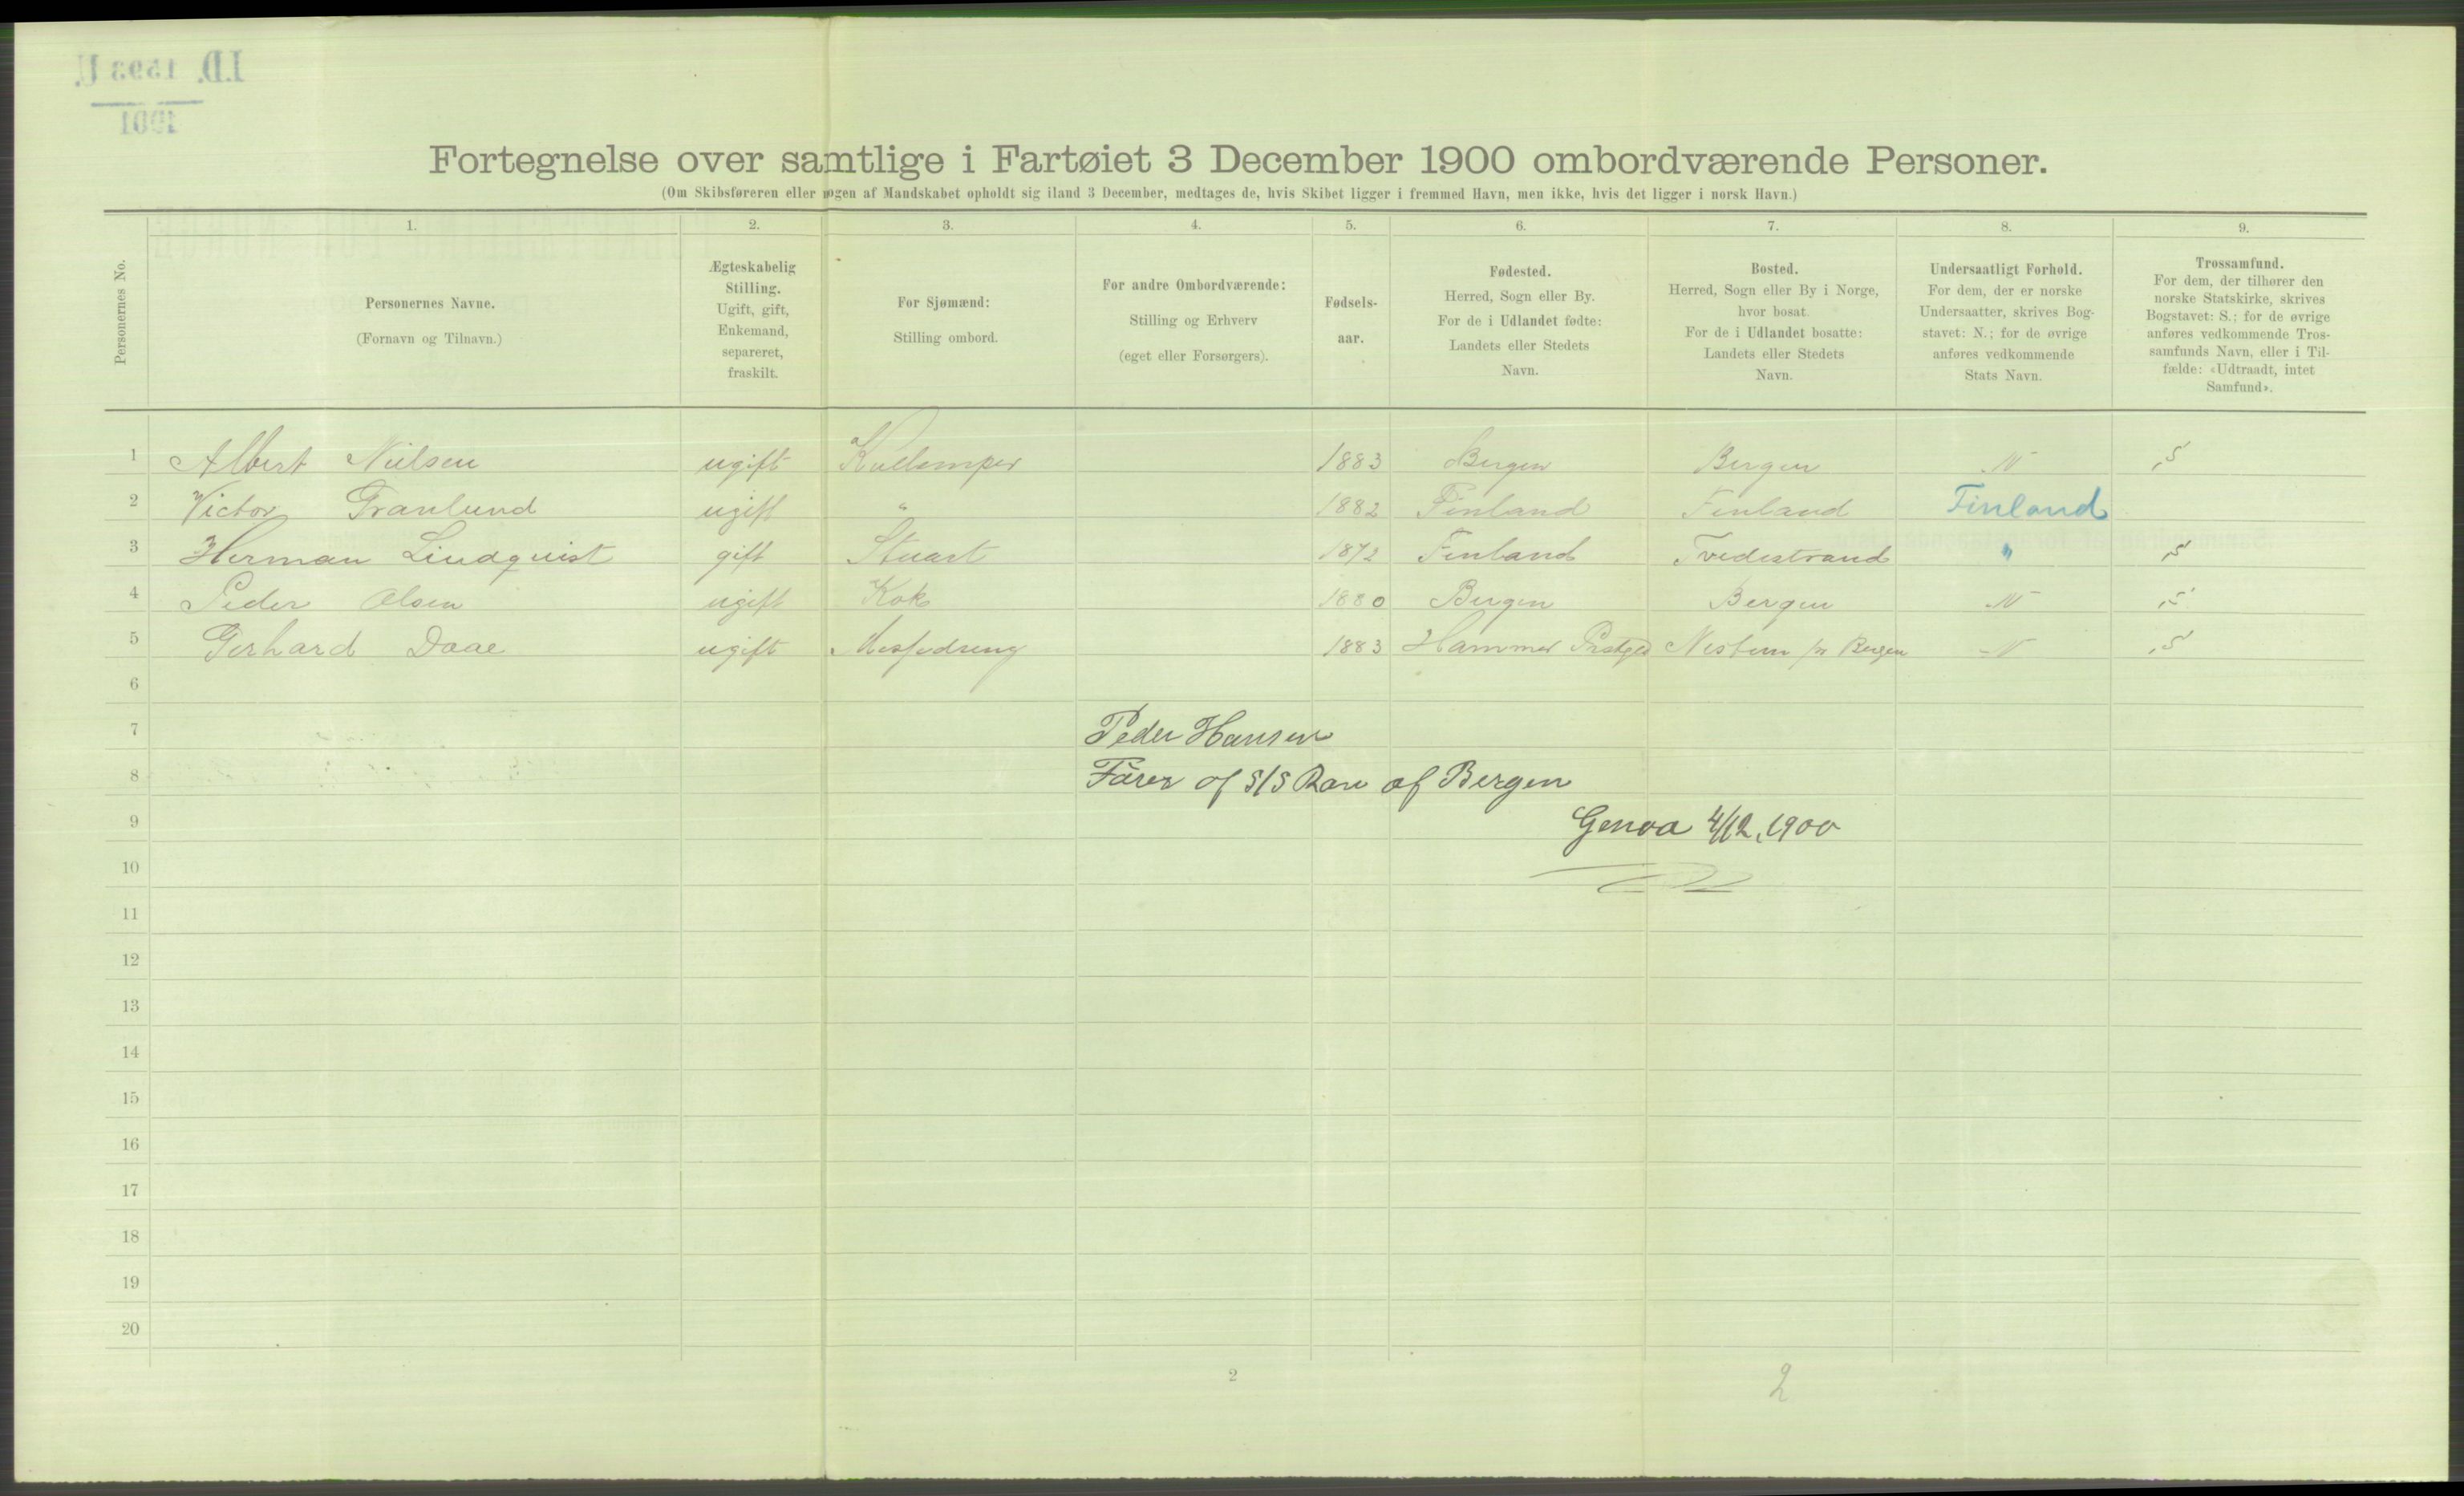 I.D. 1593 U.
1901
Fortegnelse over samtlige i Fartøiet 3 December 1900 ombordværende Personer.
(Om Skibsføreren eller nogen af Mandskabet opholdt sig iland 3 December, medtages de, hvis Skibet ligger i fremmed Havn, men ikke, hvis det ligger i norsk Havn.)
Personernes No.
1. 2. 3. 4. 5. 6. 7. 8. 9.
Personernes Navne.
(Fornavn og Tilnavn.)
Ægteskabelig
Stilling.
Ugift, gift,
Enkemand,
separeret,
fraskilt.
For Sjømænd:
Stilling ombord.
For andre Ombordværende:
Stilling og Erhverv
(eget eller Forsørgers).
Fødsels-
aar.
Fødested.
Herred, Sogn eller By.
For de i Udlandet fødte:
Landets eller Stedets
Navn.
Bosted.
Herred, Sogn eller By i Norge,
hvor bosat.
For de i Udlandet bosatte:
Landets eller Stedets
Navn.
Undersaatligt Forhold.
For dem, der er norske
Undersaatter, skrives Bog-
stavet: N.; for de øvrige
anføres vedkommende
Stats Navn.
Trossamfund.
For dem, der tilhører den
norske Statskirke, skrives
Bogstavet: S.; for de øvrige
anføres vedkommende Tros-
samfunds Navn, eller i Til-
fælde: «Udtraadt, intet
Samfund».
1 Albert Nielsen ugift Kullemper 1883 Bergen Bergen N S
2 Victor Granlund ugift " 1882 Finland Finland Finland
3 Herman Lindquist gift Stuart 1872 Finland Tvedestrand " S
4 Peder Olsen ugift Kok 1880 Bergen Bergen N S
5 Gerhard Daae ugift Messedreng 1883 Hammer Nestun Bergen N S
6
7 Peder Hansen
8 Fører of S/S Ran af Bergen
9 Genoa 4/12. 1900
10
11
12
13
14
15
16
17
18
19
20
2
2